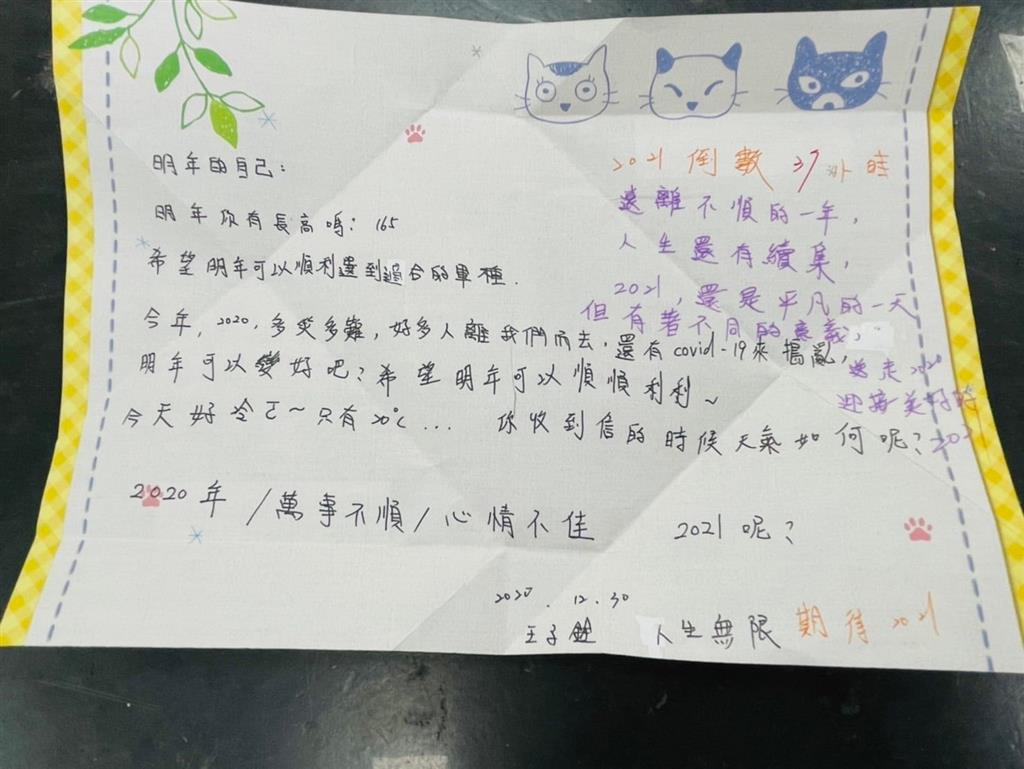 明年的自己:
明年你有長高嗎? 165
希望明年可以順利遇到適合的單種.
今年, 2020, 多災多難, 好多人離我們而去, 還有 covid-19來搗亂,
明年可以變好吧? 希望明年可以順順利利~
今天好冷ㄛ~只有20℃... 你收到信的時候天氣如何呢?
2020年 /萬事不順/心情不佳 2021呢?
2020. 12. 30
王子
人生無限 期待2021
2021 倒數 37小時
遠離不順的一年,
人生還有續集,
2021, 還是平凡的一天
但有著不同的意義,
送走2020
迎接美好的
2021